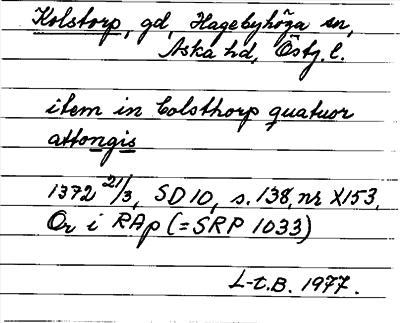 Kolstorp, gd, Hagebyhöga sn,
Aska hd, Östg. l.
item in Colsthorp quatuor
attongis
1372 21/3, SD 10, s. 138, nr X153,
Or i RAp (= SRP 1033)
L-t.B. 1977.